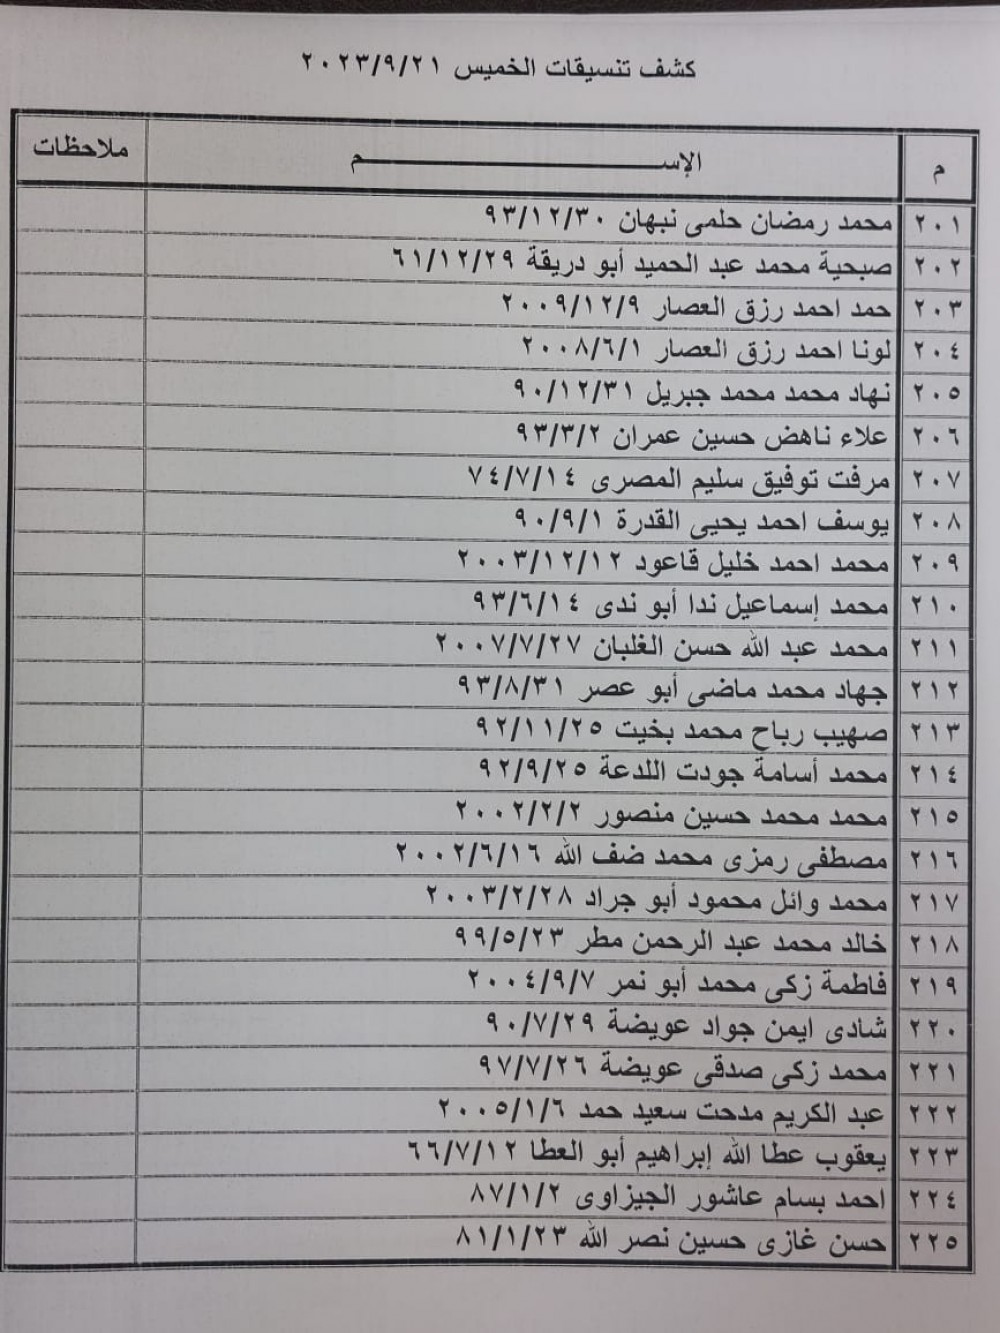 كشف تنسيقات الخميس ٢٠٢٣/٩/٢١
م الإســـــــــم ملاحظات
٢٠١ محمد رمضان حلمى نبهان ٩٣/١٢/٣٠
٢٠٢ صبحية محمد عبد الحميد أبو دريقة ٦١/١٢/٢٩
٢٠٣ حمد احمد رزق العصار ٢٠٠٩/١٢/٩
٢٠٤ لونا احمد رزق العصار ٢٠٠٨/٦/١
٢٠٥ نهاد محمد محمد جبريل ٩٠/١٢/٣١
٢٠٦ علاء ناهض حسين عمران ٩٣/٣/٢
٢٠٧ مرفت توفيق سليم المصرى ٧٤/٧/١٤
٢٠٨ يوسف احمد يحيى القدرة ٩٠/٩/١
٢٠٩ محمد احمد خليل قاعود ٢٠٠٣/١٢/١٢
٢١٠ محمد إسماعيل ندا أبو ندى ٩٣/٦/١٤
٢١١ محمد عبد الله حسن الغلبان ٢٠٠٧/٧/٢٧
٢١٢ جهاد محمد ماضى أبو عصر ٩٣/٨/٣١
٢١٣ صهيب رباح محمد بخيت ٩٢/١١/٢٥
٢١٤ محمد أسامة جودت اللدعة ٩٢/٩/٢٥
٢١٥ محمد محمد حسين منصور ٢٠٠٢/٢/٢
٢١٦ مصطفى رمزى محمد ضف الله ٢٠٠٢/٦/١٦
٢١٧ محمد وائل محمود أبو جراد ٢٠٠٣/٢/٢٨
٢١٨ خالد محمد عبد الرحمن مطر ٩٩/٥/٢٣
٢١٩ فاطمة زكى محمد أبو نمر ٢٠٠٤/٩/٧
٢٢٠ شادى ايمن جواد عويضة ٩٠/٧/٢٩
٢٢١ محمد زكى صدقى عويضة ٩٧/٧/٢٦
٢٢٢ عبد الكريم مدحت سعيد حمد ٢٠٠٥/١/٦
٢٢٣ يعقوب عطا الله إبراهيم أبو العطا ٦٦/٧/١٢
٢٢٤ احمد بسام عاشور الجيزاوى ٨٧/١/٢
٢٢٥ حسن غازى حسين نصر الله ٨١/١/٢٣